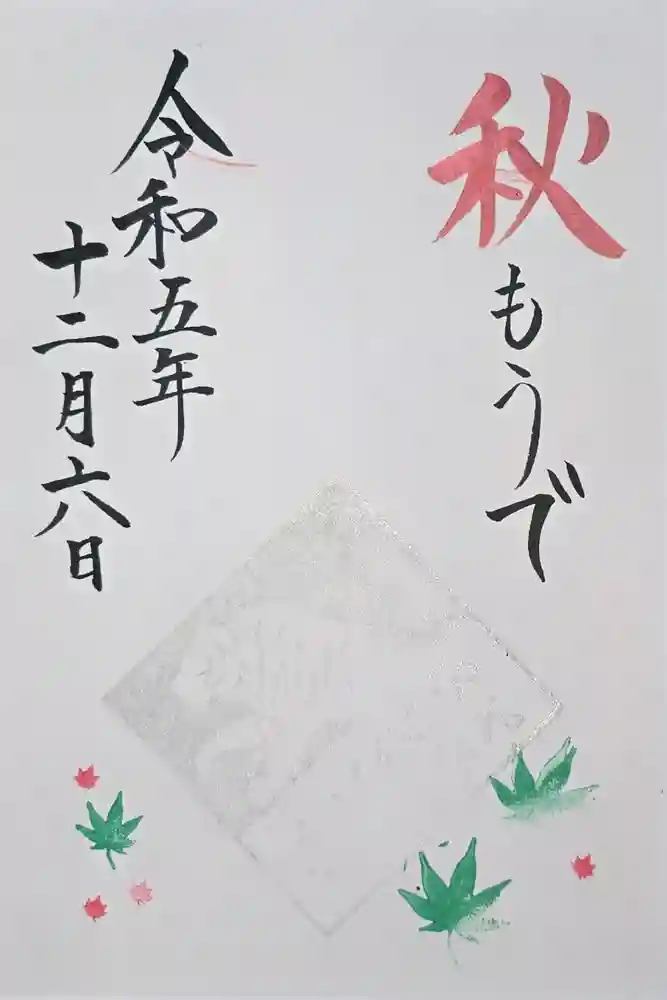 秋もうで
令和五年
十二月六日